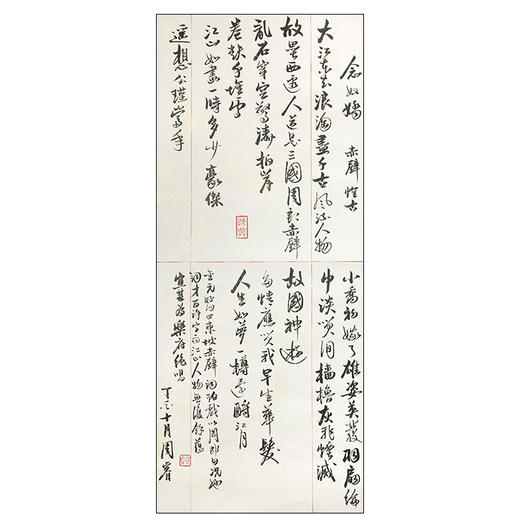 念奴嬌 赤壁懷古
大江東去浪淘盡千古風流人物
故壘西邊人道是三國周郎赤壁
亂石穿空驚濤拍岸
卷起千堆雪
江山如畫一時多少豪傑
遙想公瑾當年
小喬初嫁了雄姿英發羽扇綸
巾談笑間檣櫓灰飛煙滅
故國神遊
多情應笑我早生華髮
人生如夢一樽還酹江月
東坡赤壁詞
詞才百許字而江山人物無復餘蘊
宜其為樂府絕唱
十月周